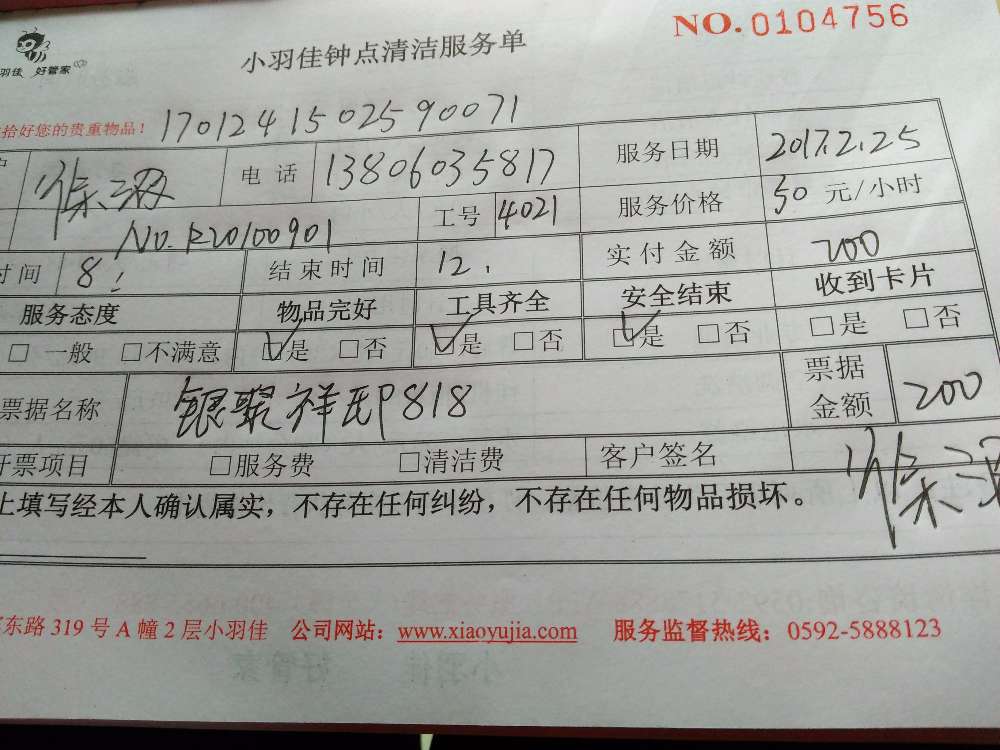 NO.0104756
小羽佳钟点清洁服务单
羽佳 好管家
拾好您的贵重物品! 1701241502590071
户 电话 13806035817 服务日期 2017.2.25
No.R20100901 工号 4021 服务价格 50 元/小时
时间 8: 结束时间 12. 实付金额 200
服务态度 物品完好 工具齐全 安全结束 收到卡片
□ 一般 □不满意 ☑是 □否 ☑是 □否 ☑是 □否 □是 □否
票据名称 银聚祥邸P818 票据金额 200
开票项目 □服务费 □清洁费 客户签名
上填写经本人确认属实，不存在任何纠纷，不存在任何物品损坏。
东路 319 号 A 幢 2 层小羽佳 公司网站：www.xiaoyujia.com 服务监督热线：0592-5888123